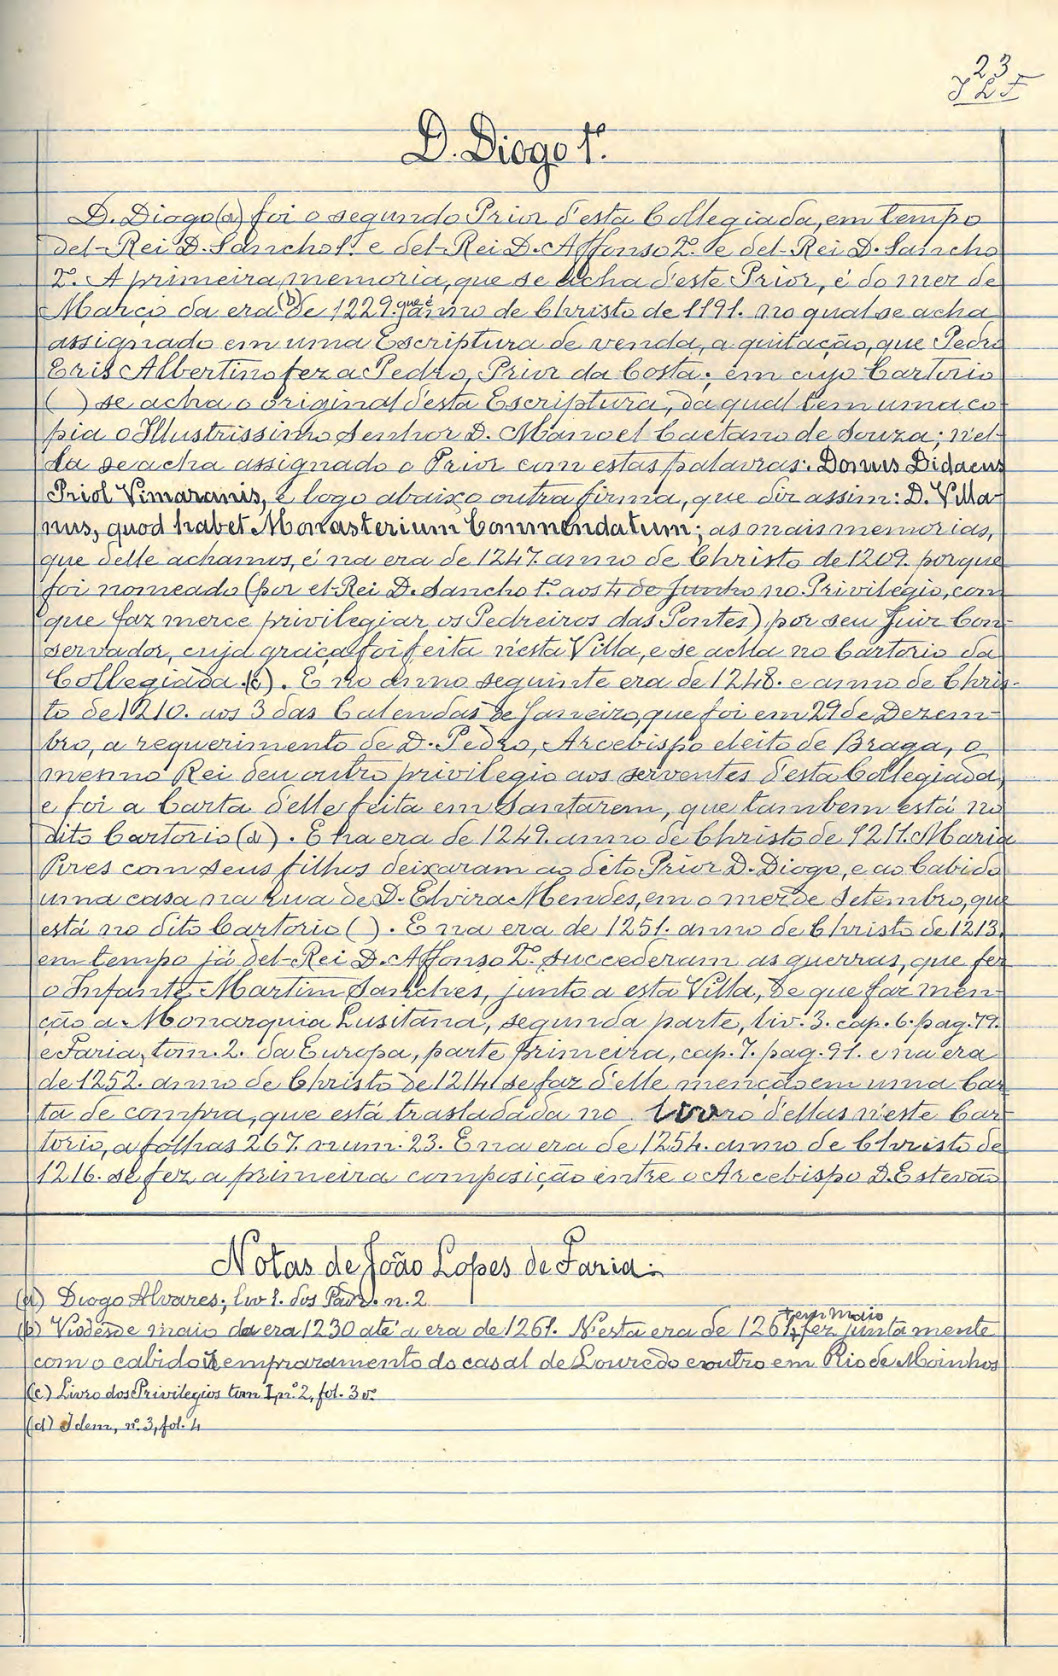 23
J L F
D. Diogo 1º.
D. Diogo (a) foi o segundo Prior d'esta Collegiada, em tempo
del-Rei D. Sancho 1º. e del-Rei D. Affonso 2º. e del-Rei D. Sancho
2º. A primeira memoria, que se acha d'este Prior, é do mez de
Março da era (b) de 1229. que é já anno de Christo de 1191. no qual se acha
assignado em uma Escriptura de venda, a quitação, que Pedro
Eris Albertino fez a Pedro, Prior da Costa; em cujo Cartorio
( ) se acha o original d'esta Escriptura, da qual tem uma co
pia o Illustrissimo Senhor D. Manoel Caetano de Souza; n'el-
la se acha assignado o Prior com estas palavras: Donus Didacus
Priol Vimaranis, e logo abaixo outra firma, que diz assim: D. Villa-
nus, quod habet Monasterium Commendatum; as mais memorias,
que delle achamos, é na era de 1247. anno de Christo de 1209. porque
foi nomeado (por el-Rei D. Sancho 1º. aos 4 de Junho no Privilegio, com
que faz merce privilegiar os Pedreiros das Pontes) por seu Juiz Con-
servador, cuja graça foi feita n'esta Villa, e se acha no Cartorio da
Collegiada (c). E no anno seguinte era de 1248. e anno de Chris-
to de 1210. aos 3 das Calendas de Janeiro, que foi em 29 de Dezem-
bro, a requerimento de D. Pedro, Arcebispo eleito de Braga, o
mesmo Rei deu outro privilegio aos serventes d'esta Collegiada,
e foi a Carta d'elle feita em Santarem, que tambem está no
dito Cartorio (d). E na era de 1249. anno de Christo de 1211. Maria
Pires com seus filhos deixaram ao dito Prior D. Diogo, e ao Cabido
uma casa na rua de D. Elvira Mendes, em o mez de Setembro, que
está no dito Cartorio ( ). E na era de 1251. anno de Christo de 1213.
em tempo já del-Rei D. Affonso 2º. succederam as guerras, que fez
o Infante Martim Sanches, junto a esta Villa, de que faz men-
ção a Monarquia Lusitana, segunda parte, liv. 3. cap. 6. pag. 79.
e Faria, tom. 2. da Europa, parte primeira, cap. 7. pag. 91. e na era
de 1252. anno de Christo de 1214. se faz d'elle menção em uma Car
ta de compra, que está trasladada no livro d'ellas n'este Car-
torio, a folhas 267. num. 23. E na era de 1254. anno de Christo de
1216. se fez a primeira composição entre o Arcebispo D. Estevão
Notas de João Lopes de Faria:
(a) Diogo Alvares; liv 1. dos n. 2
(b) Vi desde maio da era 1230 até a era de 1261. N'esta era de 1261, em maio, fez junta mente
com o cabido emprazamento do casal de Louredo e outro em Rio de Moinhos
(c) Livro dos Privilegios tom I, nº. 2, fol. 3 vº.
(d) Idem, nº. 3, fol. 4